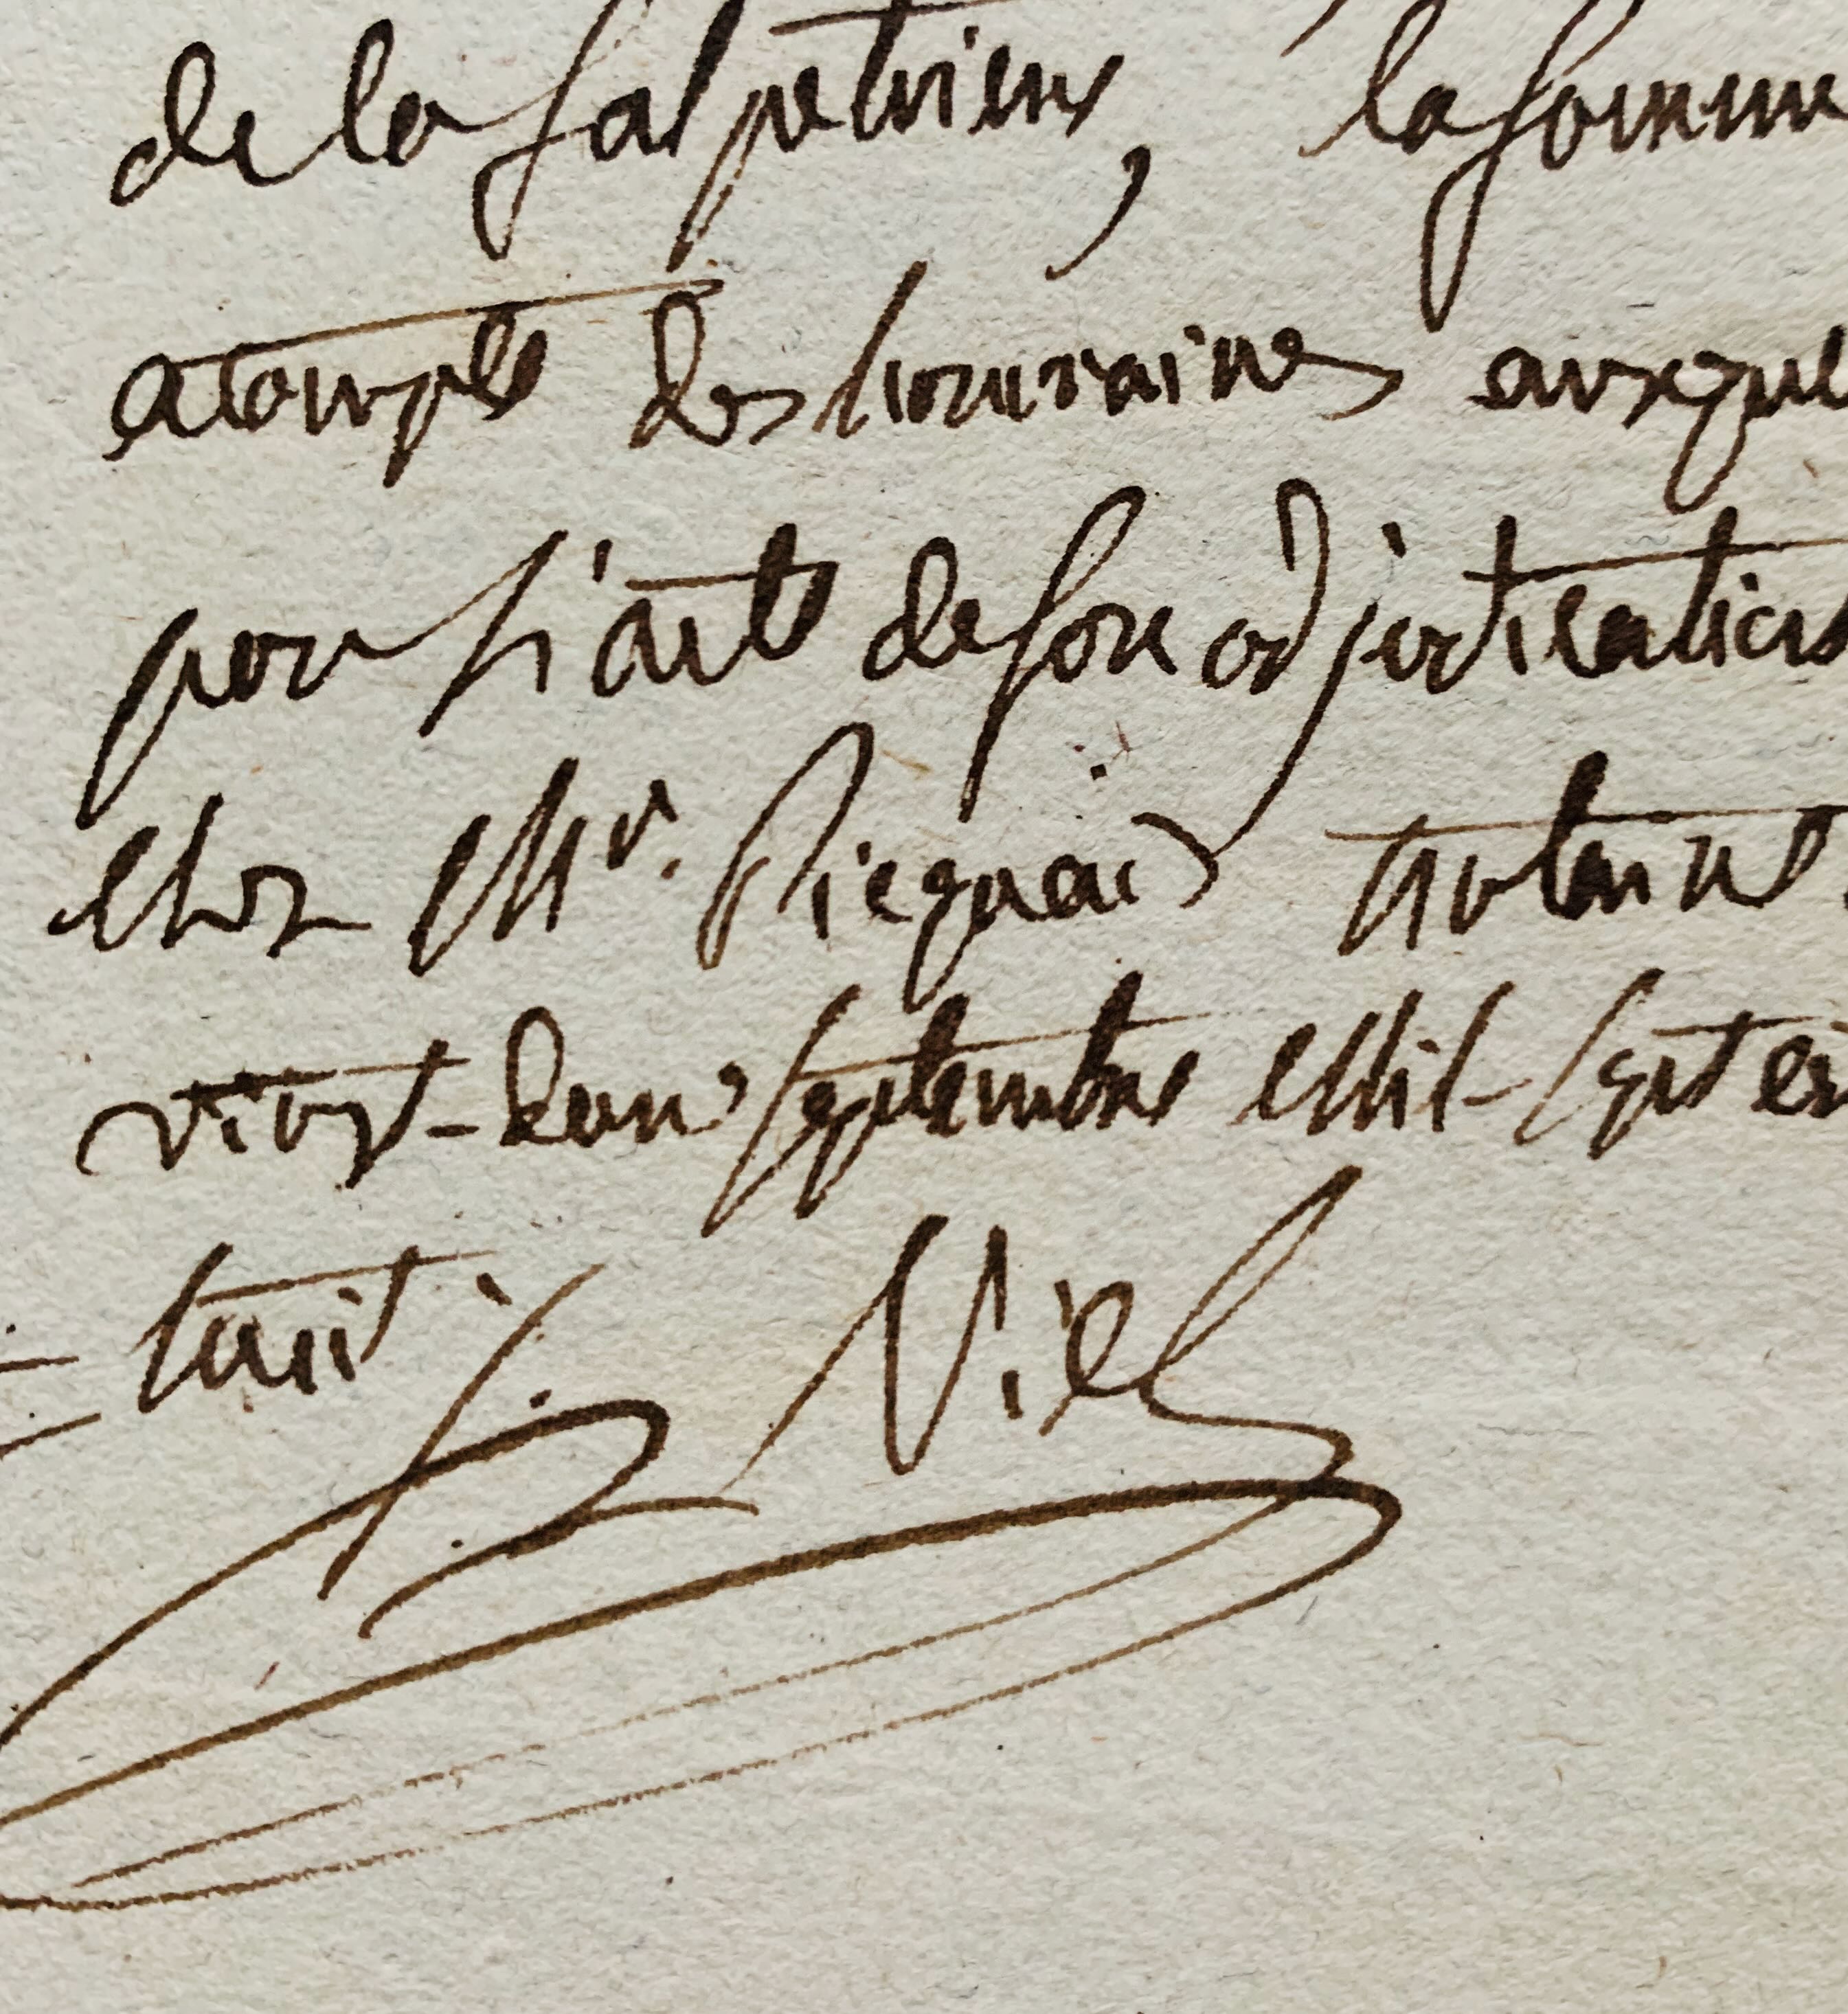 de la salpetriere, la somme
acompte des honoraires auxquel
par l'acte de son adjudication
chez Mr. Regnard notaire.
vingt-deux septembre Mil-sept cen
huit
Viel